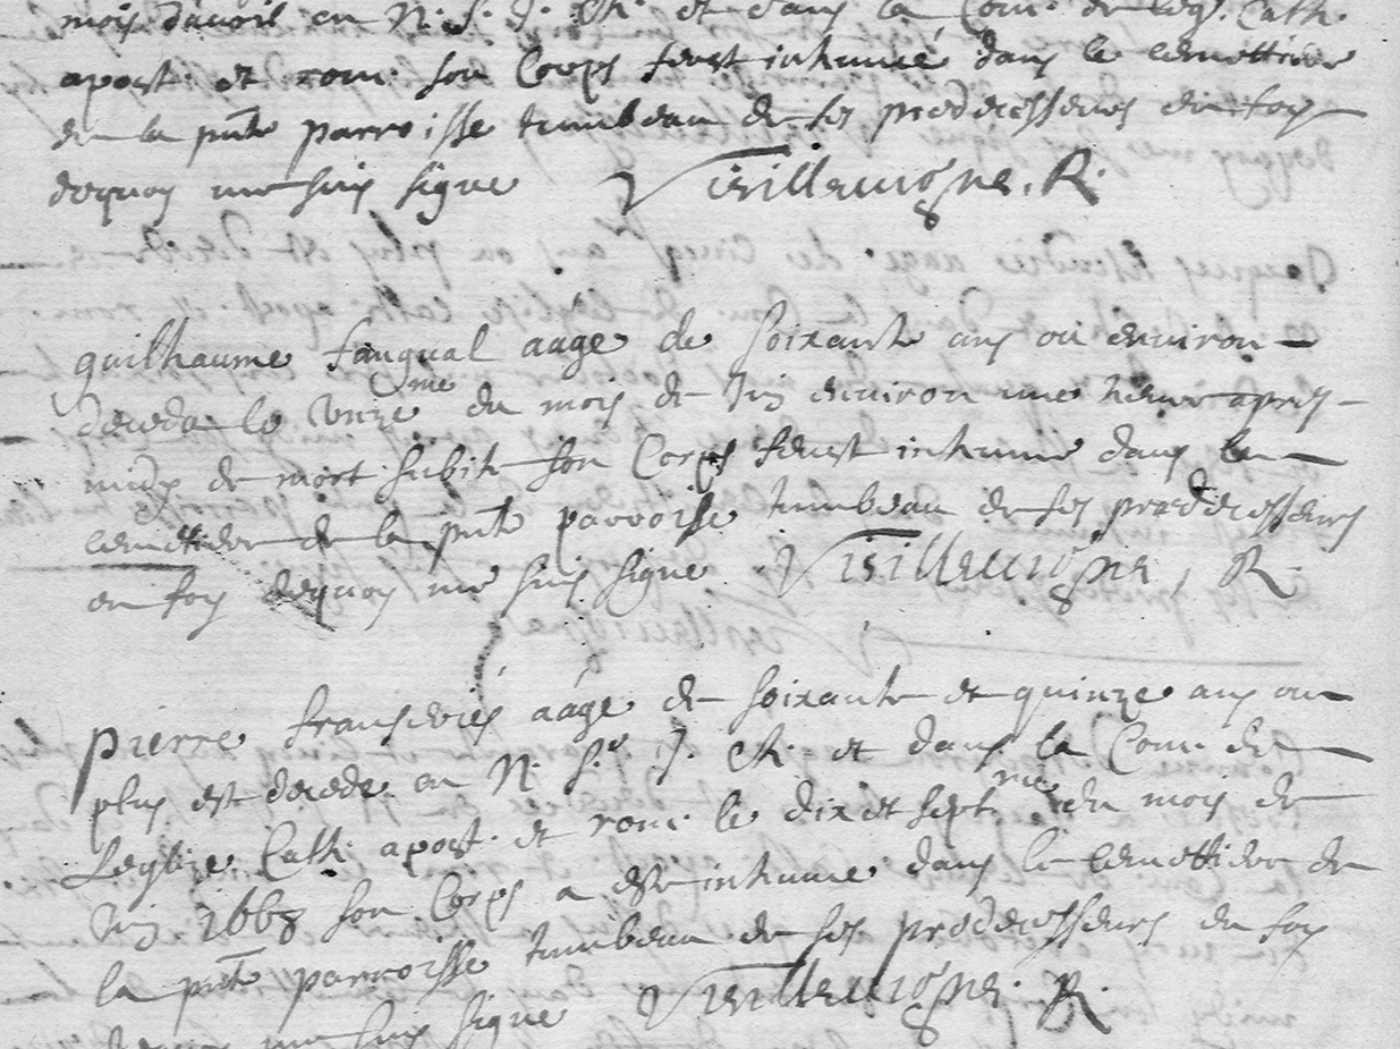 mois davril en N. S. J. Ch. et dans la Com. de legl. Cath.
apost. et rom. son Corps feust inhumé dans le cemettiere
de la pnte parroisse tumbeau de ses predecesseurs en foy
dequoy me suis signe Vieillevigne. R.
guilhaume fangual aage de soixante ans ou environ
deceda le unze me du mois de Juin environ une heure apres
midy de mort subite son Corps feust inhume dans le
cemettiere de la pnte parroisse tumbeau de ses predecesseurs
en foy dequoy me suis signe Vieillevigne, R.
pierre aage de soixante et quinze ans ou
plus est decede en N. S.r J. Ch. et dans la Com. de
Leglize Cath. apost. et rom. le dix et sept me du mois de
Juin 1668 son Corps a este inhume dans le cemettiere de
la pnte parroisse tumbeau de ses predecesseurs en foy
dequoy me suis signe Vieillevigne. R.